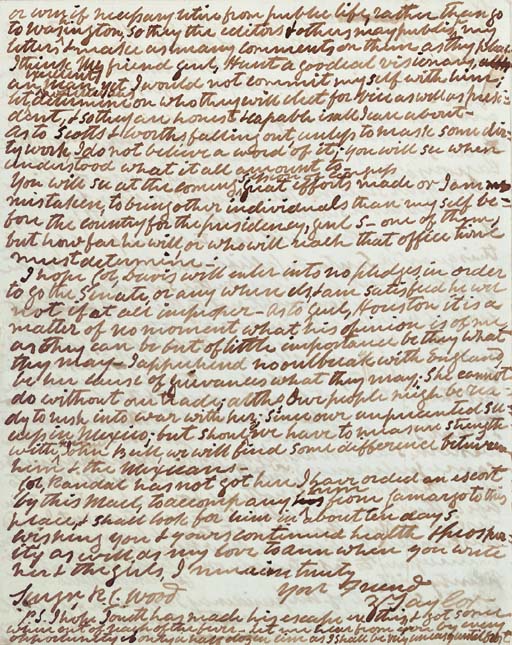 or even if necessary retire from public life, rather than go
to Washington, so they the editors & others may publish my
letters & make as many comments on them as they please
I think My friend Genl. Hunt a good deal visionary,
I would not commit myself with him;
determine on who they will elect for Vice as well as presi-
dent, & so they are honest & capable is all I care about-
As to Scotts & Worths falling out, unless to mask some dir-
ty work I do not believe a word of it; you will see when
understood what it all amount to
You will see at the coming Congress great efforts made or I am
mistaken, to bring other individuals than myself be-
fore the country for the presidency, Genl S. one of them,
but how far he will or who will reach that office time
must determine.-
I hope Col. Davis will enter into no pledges in order
to go the Senate, or any where else & am satisfied he will
not if at all improper- As to Genl. Houston it is a
matter of no moment what his opinion is of me
as they can be but of little importance be they what
they may- I apprehend no outbreak with England
be her cause of grievances what they may; she cannot
do without our trade; altho our people might be rea-
dy to rush into war with her, since our unprecented suc-
cess in Mexico; but should we have to measure strength
with John Bull we will find some difference between
him & the Mexicans-
Col Randal has not got here I have ordered an escort
by this Mail, to accompany him from Camargo to this
place, & shall look for him in about ten days
Wishing you & yours continued health & prosper-
ity as well as my love to Ann when you write
her & the girls, I remain truly
Your Friend
Z. Taylor
Surgn. R. C. Wood
P.S. I hope has made his escape & got some
where out of reach of the - let me hear from you by every
opportunity if only a half dozen lines as I shall be very uneasy until